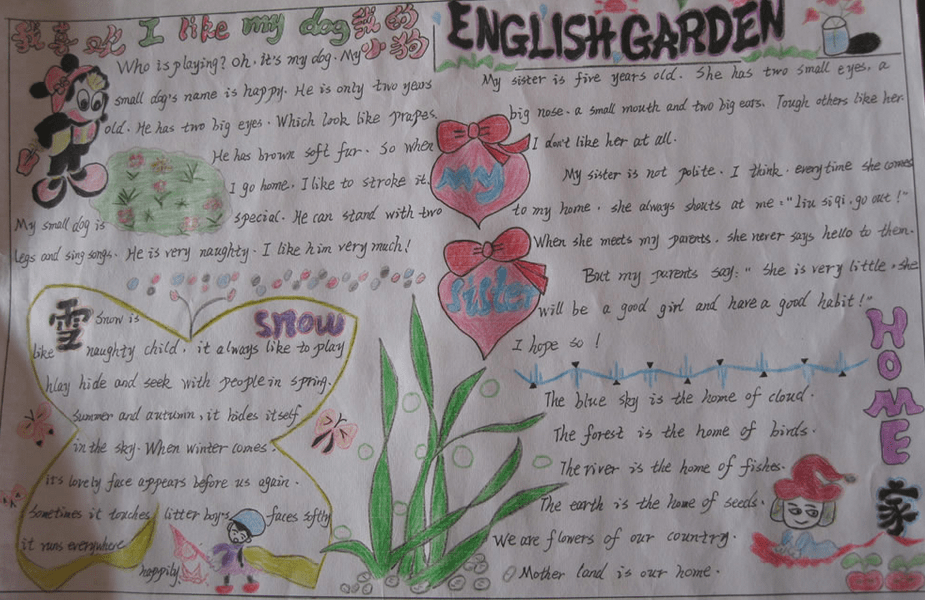 我喜欢 I like my dog 我的小狗
Who is playing? Oh, it's my dog. My
small dog's name is happy. He is only two years
old. He has two big eyes. Which look like prapes.
He has brown soft fur. So when
I go home. I like to stroke it.
My small dog is special. He can stand with two
legs and sing songs. He is very naughty. I like him very much!
雪 snow
Snow is
like naughty child. it always like to play
hlay hide and seek with people in spring.
Summer and autumn, it hides itself
in the sky. When winter comes,
it's lovely face appears before us again.
Sometimes it touches litter boy's faces softly
it runs everywhere
happily.
ENGLISH GARDEN
My sister
My sister is five years old. She has two small eyes, a
big nose, a small mouth and two big ears. Tough others like her.
I don't like her at all.
My sister is not polite. I think. every time she comes
to my home, she always shouts at me: "liu siqi, go out!"
When she meets my parents, she never says hello to them.
But my parents say: " She is very little, she
will be a good girl and have a good habit!"
I hope so!
HOME 家
The blue sky is the home of cloud.
The forest is the home of birds.
The river is the home of fishes.
The earth is the home of seeds.
We are flowers of our country.
Mother land is our home.